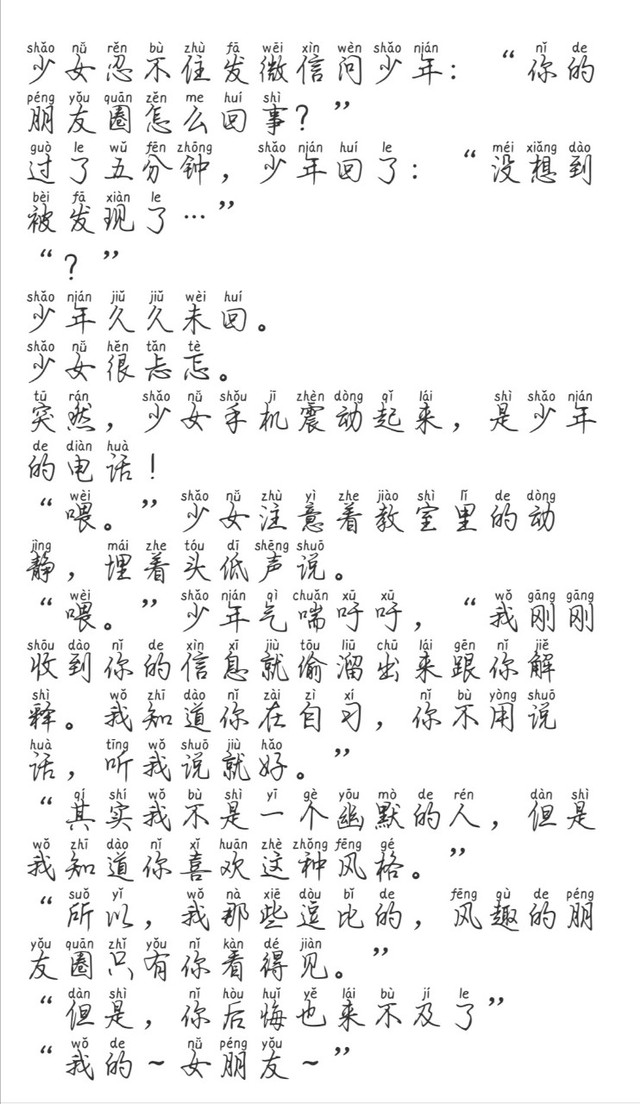 shǎo nǚ rěn bù zhù fā wēi xìn wèn shǎo nián nǐ de
少女忍不住发微信问少年：“你的
péng yǒu quān zěn me huí shì
朋友圈怎么回事？”
guò le wǔ fēn zhōng shǎo nián huí le méi xiǎng dào
过了五分钟，少年回了：“没想到
bèi fā xiàn le
被发现了…”
“？”
shǎo nián jiǔ jiǔ wèi huí
少年久久未回。
shǎo nǚ hěn tǎn tè
少女很忐忑。
tū rán shǎo nǚ shǒu jī zhèn dòng qǐ lái shì shǎo nián
突然，少女手机震动起来，是少年
de diàn huà
的电话！
wèi shǎo nǚ zhù yì zhe jiào shì lǐ de dòng
“喂。”少女注意着教室里的动
jìng mái zhe tóu dī shēng shuō
静，埋着头低声说。
wèi shǎo nián qì chuǎn xū xū wǒ gāng gāng
“喂。”少年气喘吁吁，“我刚刚
shōu dào nǐ de xìn xī jiù tōu liū chū lái gēn nǐ jiě
收到你的信息就偷溜出来跟你解
shì wǒ zhī dào nǐ zài zì xí nǐ bù yòng shuō
释。我知道你在自习，你不用说
huà tīng wǒ shuō jiù hǎo
话，听我说就好。”
qí shí wǒ bù shì yī gè yōu mò de rén dàn shì
“其实我不是一个幽默的人，但是
wǒ zhī dào nǐ xǐ huān zhè zhǒng fēng gé
我知道你喜欢这种风格。”
suǒ yǐ wǒ nà xiē dòu bǐ de fēng qù de péng
“所以，我那些逗比的，风趣的朋
yǒu quān zhǐ yǒu nǐ kàn dé jiàn
友圈只有你看得见。”
dàn shì nǐ hòu huǐ yě lái bù jí le
“但是，你后悔也来不及了”
wǒ de nǚ péng yǒu
“我的~女朋友~”